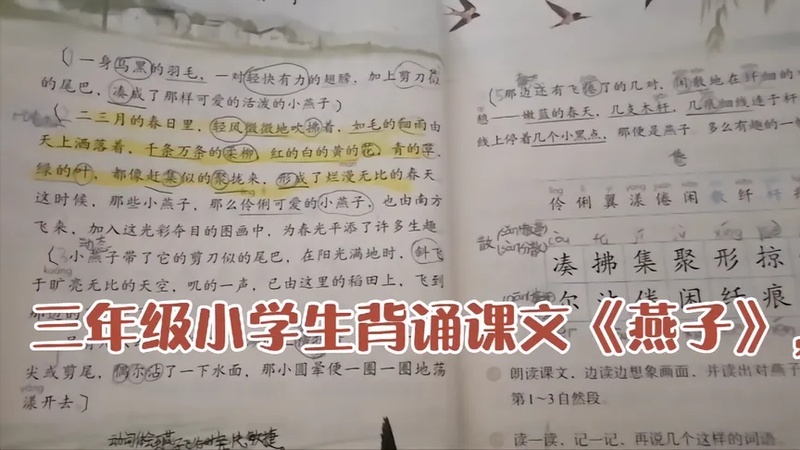 一身乌黑的羽毛,一对轻快有力的翅膀,加上剪刀似
的尾巴,凑成了那样可爱的活泼的小燕子
二三月的春日里,轻风微微地吹拂着,如毛的细雨由
天上洒落着,千条万条的柔柳,红的白的黄的花,青的草,
绿的叶,都像赶集似的聚拢来,形成了烂漫无比的春天
这时候,那些小燕子,那么伶俐可爱的小燕子,也由南方
飞来,加入这光彩夺目的图画中,为春光平添了许多生趣
动态
小燕子带了它的剪刀似的尾巴,在阳光满地时,斜飞
kuàng
于旷亮无比的天空,叽的一声,已由这里的稻田上,飞到
三年级小学生背诵课文《燕子》
尖或剪尾,偶尔沾了一下水面,那小圆晕便一圈一圈地荡
yàng
漾开去
那边还有飞倦了的几对,闲散地在纤细的
嫩蓝的春天,几支木杆,几痕细线连于杆
线上停着几个小黑点,那便是燕子。多么有趣的一
倦
伶俐翼漾倦闲散纤杆
散
凑拂集聚形掠
倦闲纤痕
朗读课文,边读边想象画面,并读出对燕子
第1~3自然段。
读一读,记一记,再说几个这样的词语